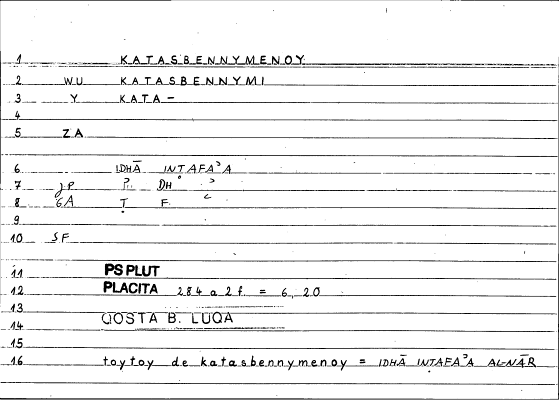 1 KATASBENNYMENOY
2 WU KATASBENNYMI
3 Y KATA-
4
5 ZA
6 IDHĀ INTAFAʾA
7 JP DH ʾ
8 GA Ṭ F ʿ
9
10 SF
11 PS PLUT
12 PLACITA 284 a 2 f. = 6, 20
13
14 QOSTA B. LUQA
15
16 toytoy de katasbennymenoy = IDHĀ INṬAFAʾA AL-NĀR